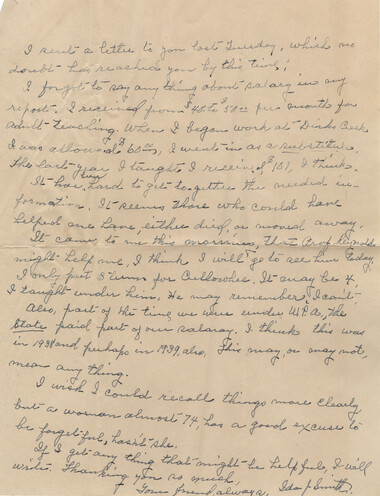 I sent a letter to you last Tuesday, which no
doubt has reached you by this time.
I forgot to say any thing about salary in my
report. I received from $45 to $ per month for
adult teaching. When I began work at Dicks Creek
I was allowed $60 , I went in as a substitute.
The last year I taught I received $101, I think.
It has been hard to get together the needed in-
formation. It seems those who could have
helped me have, either died, or moved away.
It came to me this morning, that Prof
might help me. I think I will go to see him today.
I only put 3 terms for Cullowhee. It may be 4,
I taught under him. He may remember, I can't.
Also, part of the time we were under W.P.A, the
State paid part of our salaray. I think this was
in 1938 and perhaps in 1939, also. This may, or may not,
mean any thing.
I wish I could recall things more clearly
but a woman almost 74, has a good excuse to
be forgetful, hasn't she.
If I get any thing that might be helpful, I will
write. Thanking you so much,
Your friend always, Ida Smith.